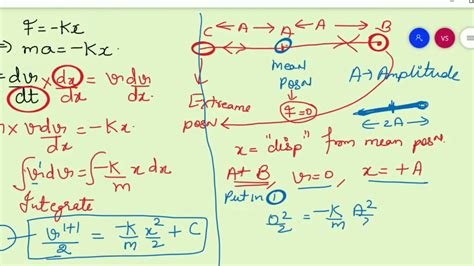 F = -Kx
⇒ ma = -Kx.
= dv/dt × dx/dx = v dv/dx
m × v dv/dx = -Kx
∫v¹dv = ∫-K/m x dx
Integrate
v¹⁺¹/2 = -K/m x²/2 + C
C ← A → A ← A → B
mean
posn
Extreame
posn
F = 0
A → Amplitude
← 2A →
x = "disp" from mean posn.
At B, v = 0, x = +A
Put in ①
0²/2 = -K/m A²/2
VS